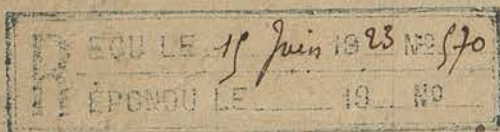 REÇU LE 15 Juin 1923 Nº 570
RÉPONDU LE 19 Nº